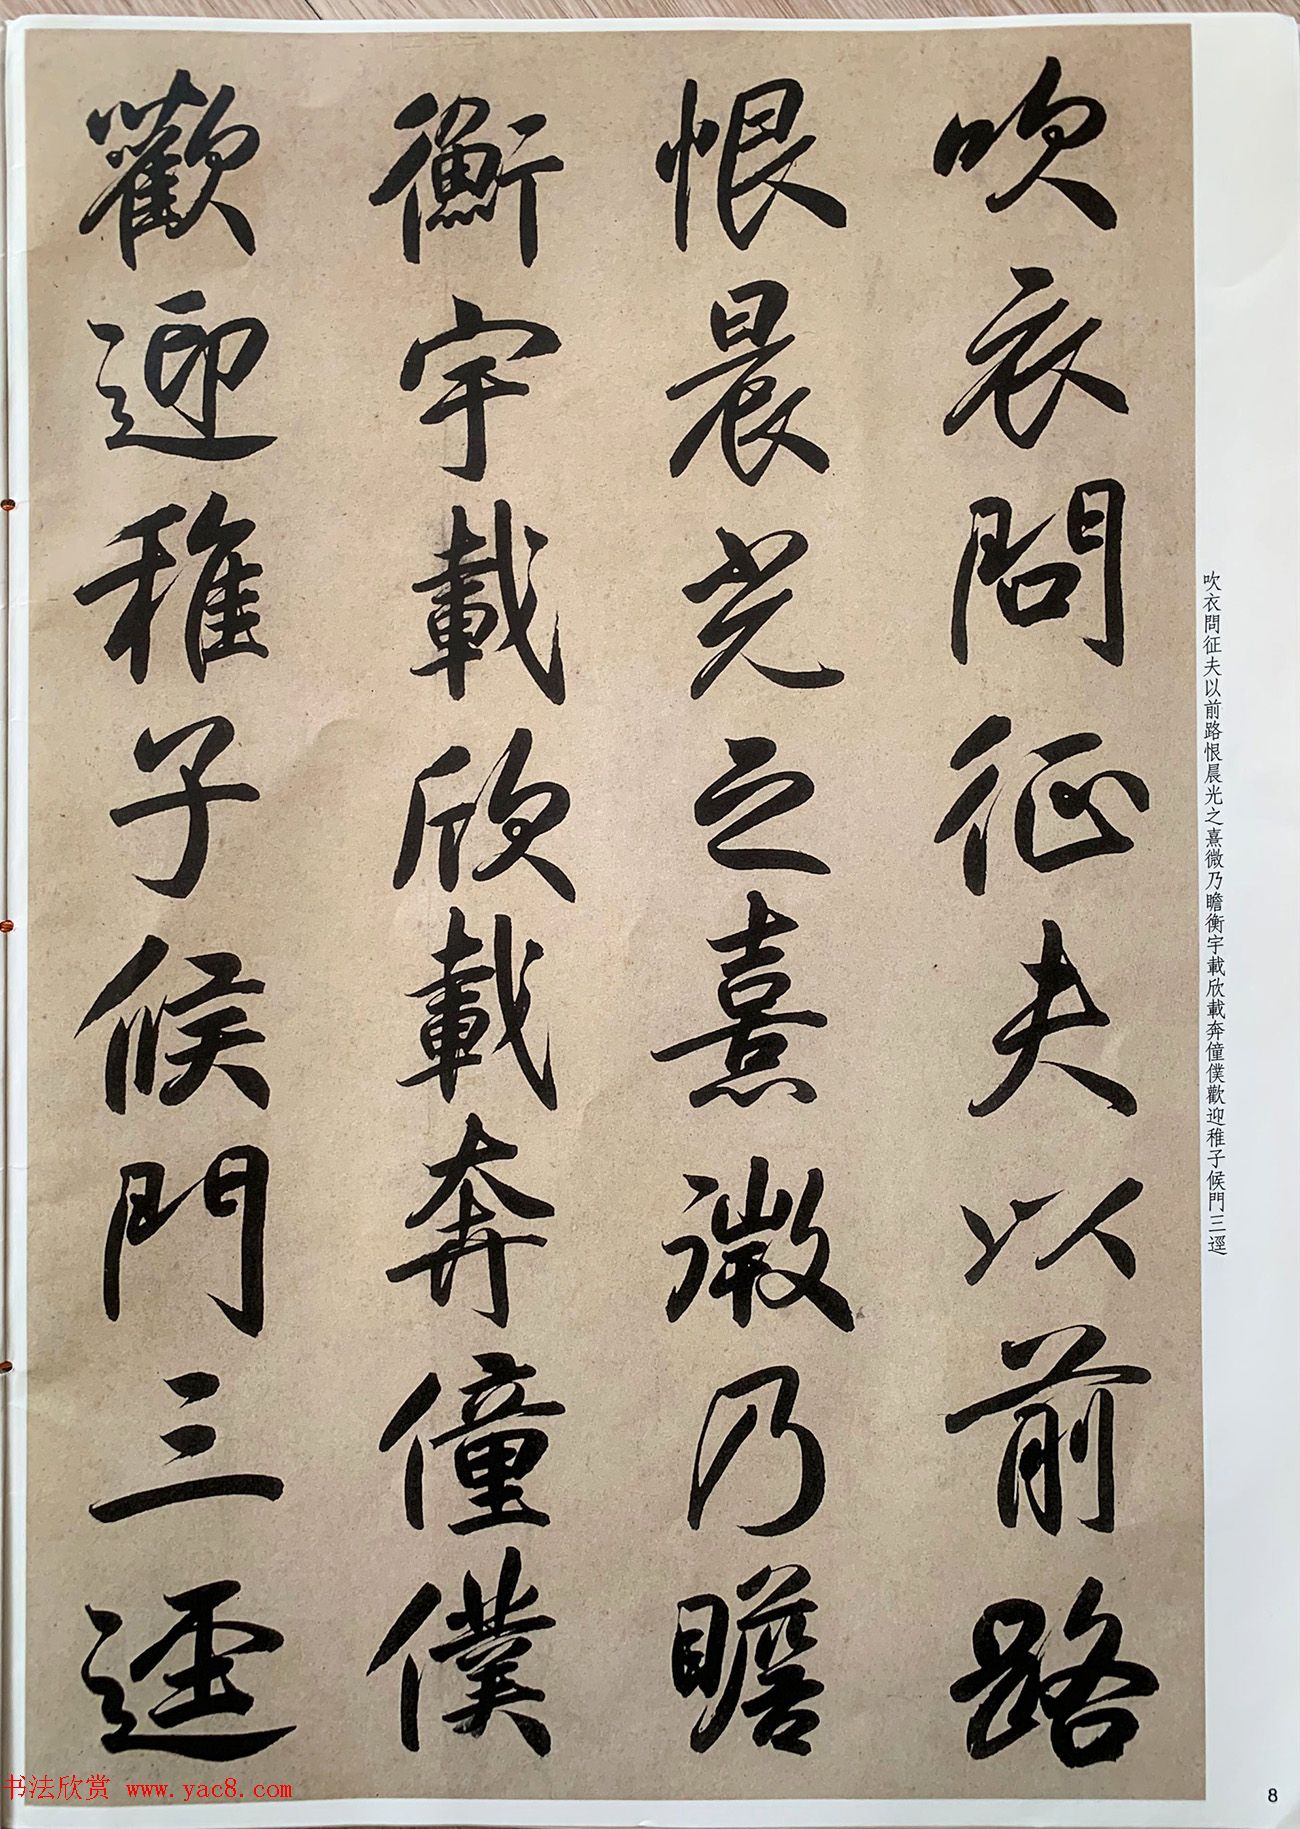 吹衣問征夫以前路
恨晨光之熹微乃瞻
衡宇載欣載奔僮僕
歡迎稚子候門三逕
吹衣問征夫以前路恨晨光之熹微乃瞻衡宇載欣載奔僮僕歡迎稚子候門三逕
书法欣赏 www.yac8.com
8